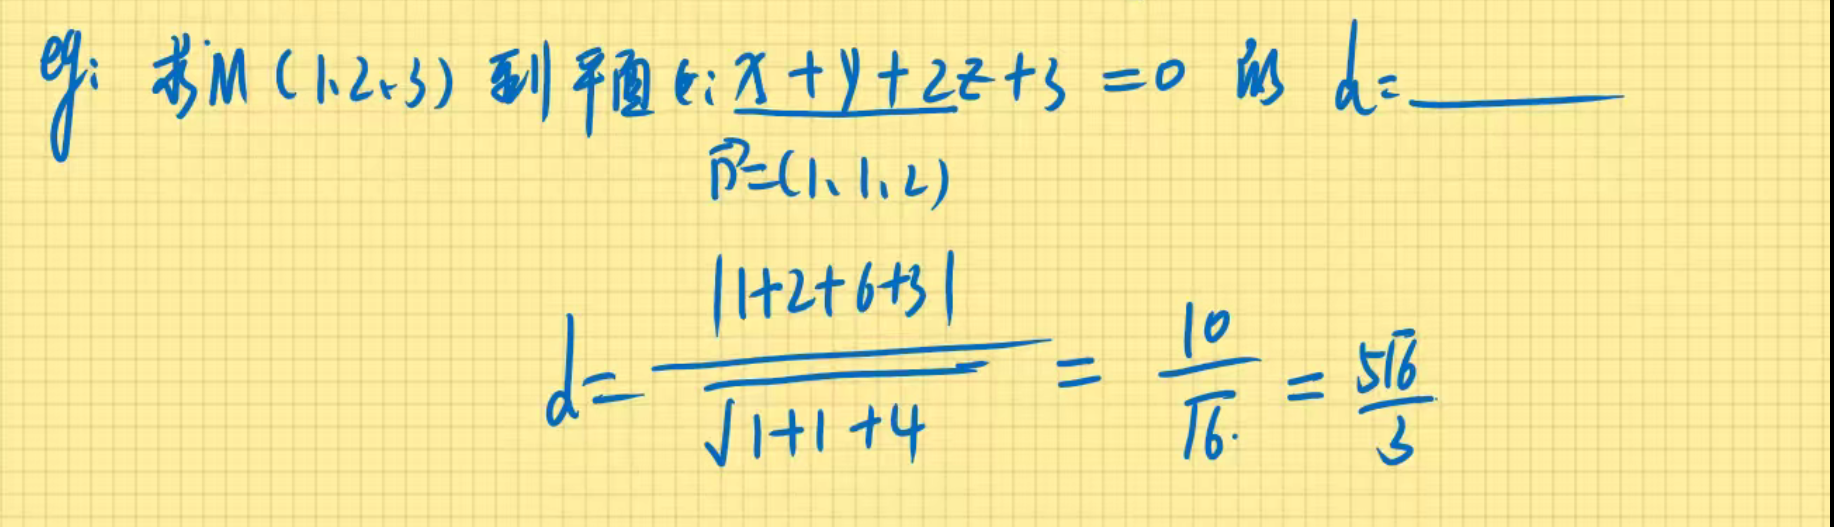 eg: 求M(1、2、3) 到平面 α: x+y+2z+3=0 的 d=______
n⃗=(1、1、2)
d= |1+2+6+3| / √(1+1+4) = 10/√6 = 5√6/3